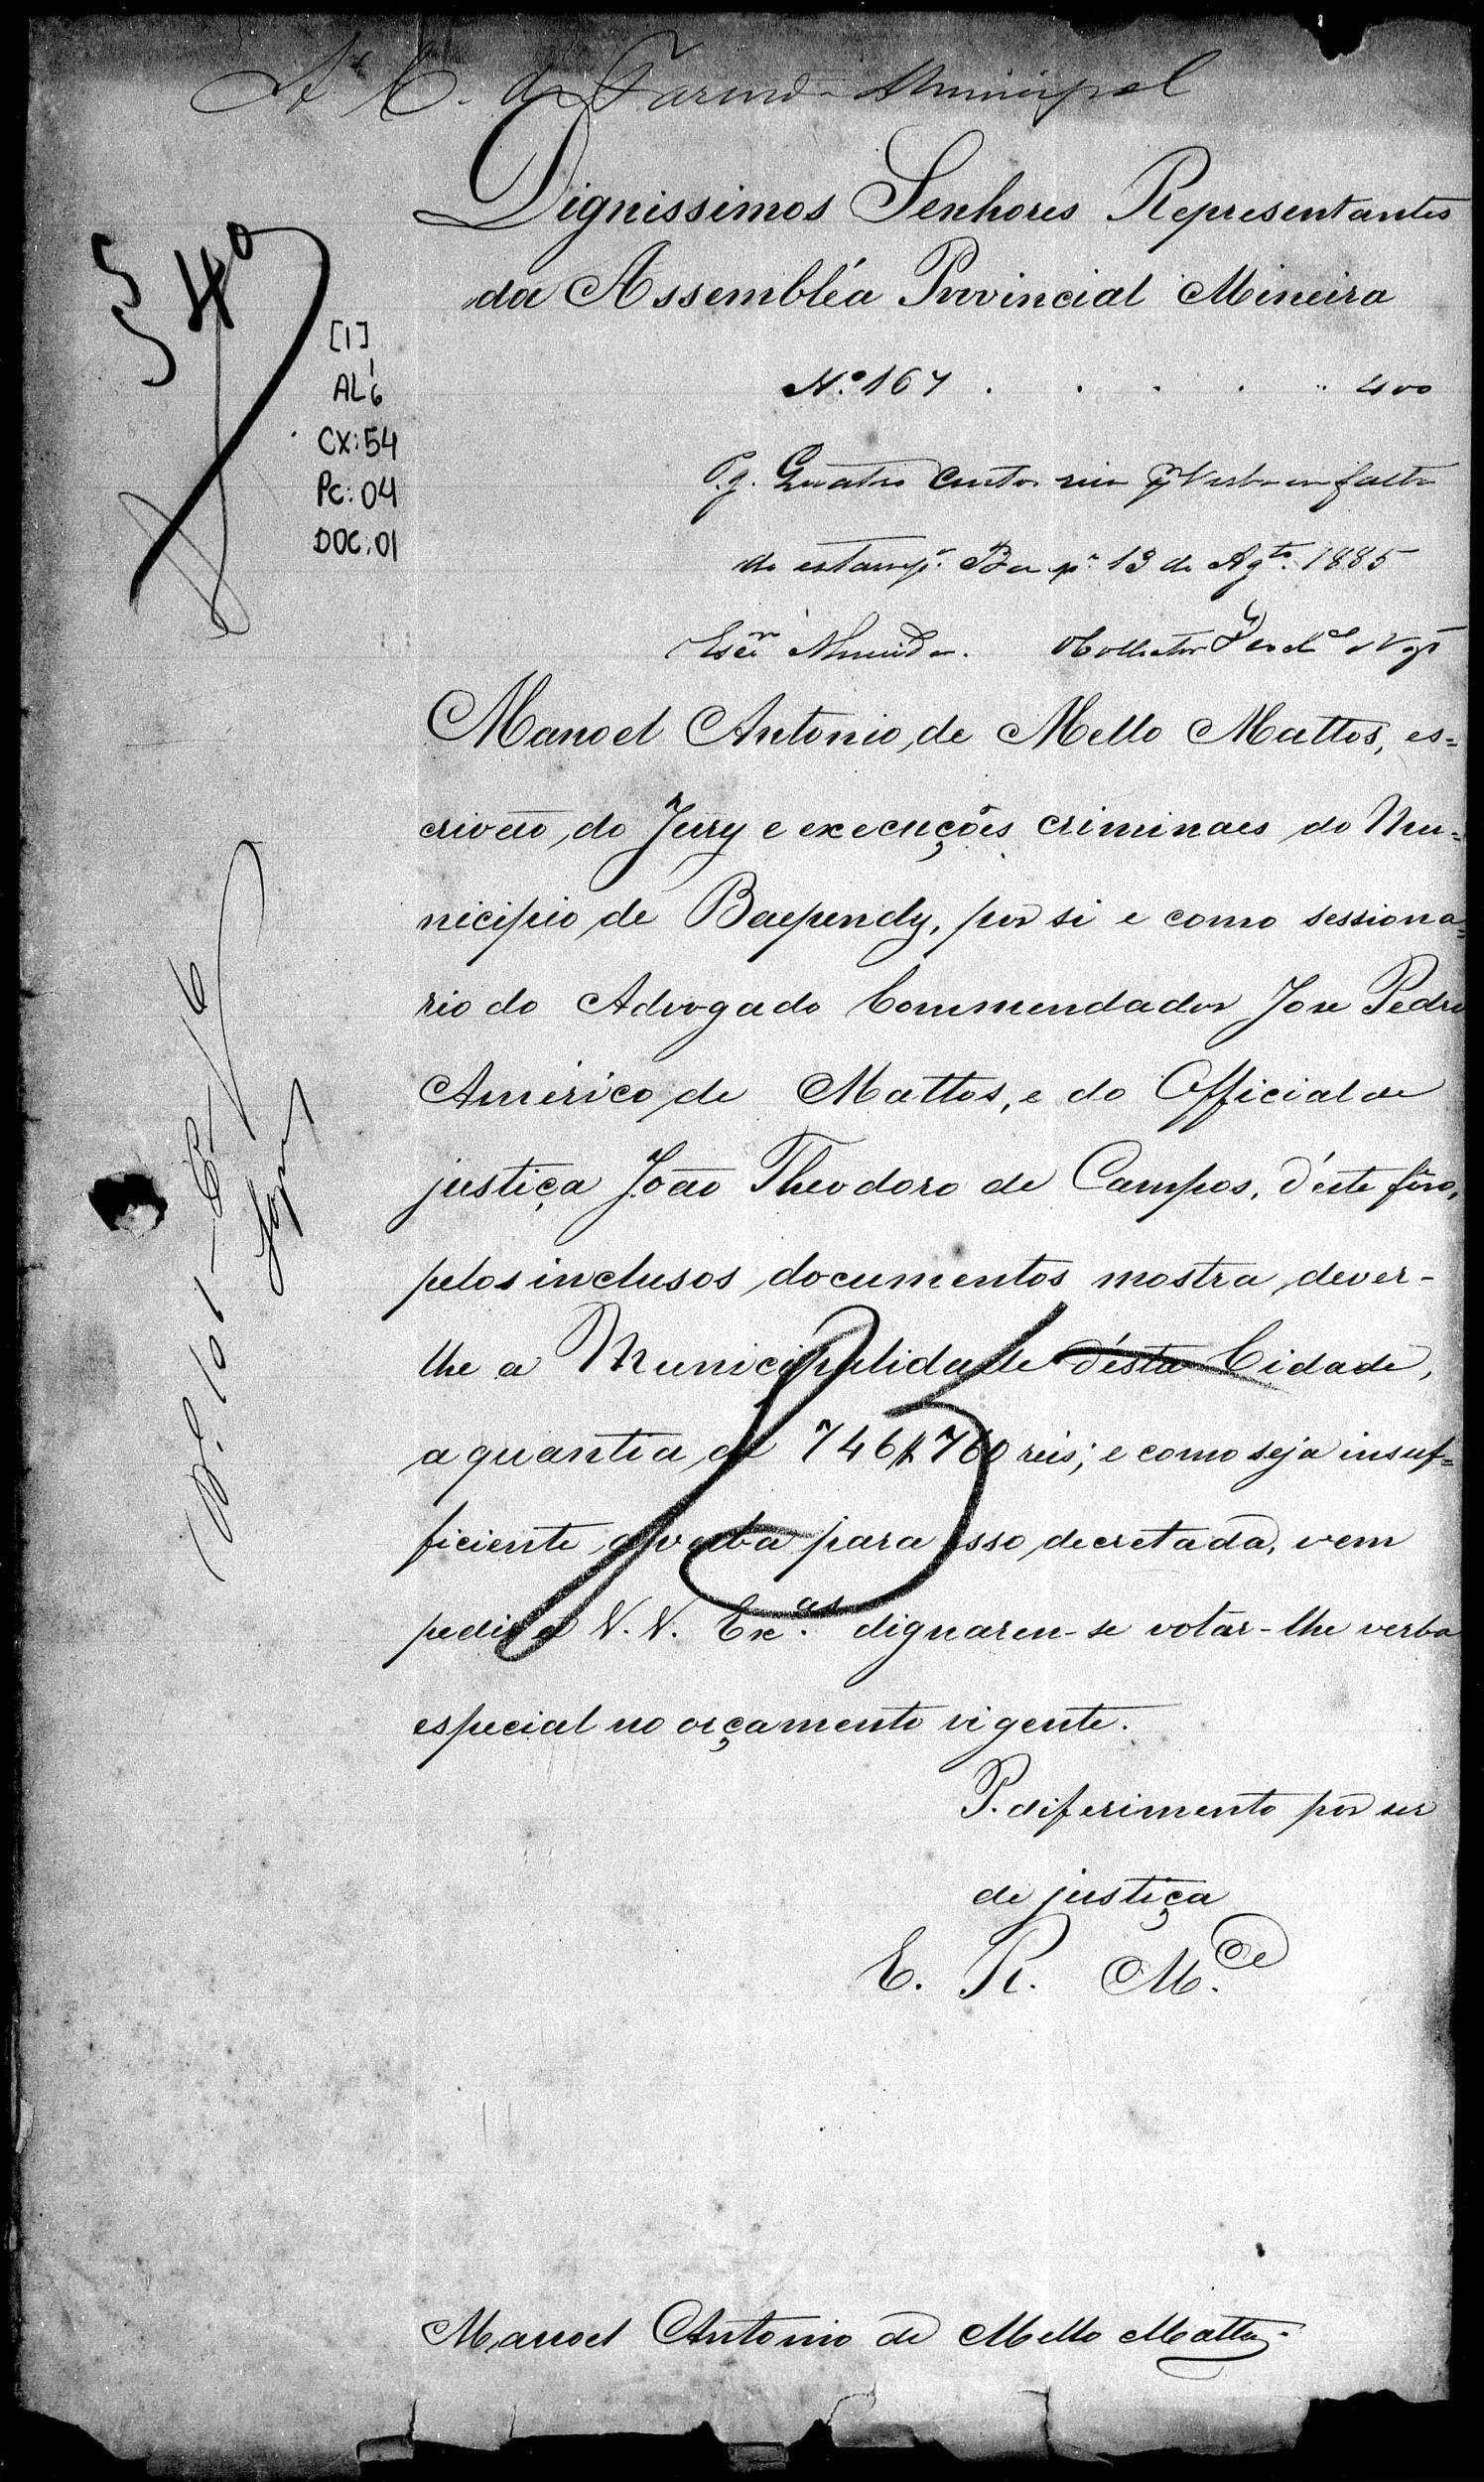 A' C. de Fazenda Municipal
Dignissimos Senhores Representantes
da Assembléa Provincial Mineira
§ 40
[1]
AL 6
CX: 54
Pc: 04
DOC. 01
N.º 167 . . . . . 400
Pg. Quatro Centos reis p.r Verba em falta
de estamp.ª Bae.p.ⁿ 13 de Ag.to 1885
Escr.m Almeida. Collector
Manoel Antonio de Mello Mattos, es=
crivão do Jury e execuções criminaes do Mu=
nicipio de Baependy, por si e como sessiona=
rio do Advogado Commendador Jose Pedro
Américo de Mattos, e do Official de
justiça João Theodoro de Campos, d'este fôro,
pelos inclusos documentos mostra dever-
lhe a Municipalidade d'esta Cidade,
a quantia de 746$760 reis; e como seja insuf=
ficiente a verba para isso decretada, vem
pedir a V. V. Ex.as dignarem-se votar-lhe verba
especial no orçamento vigente.
P. diferimento por ser
de justiça
E. R. M.ce
Manoel Antonio de Mello Mattos